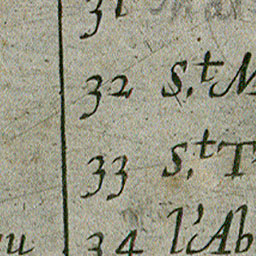 31
32 S.t M
33 S.t T
34 l'Ab